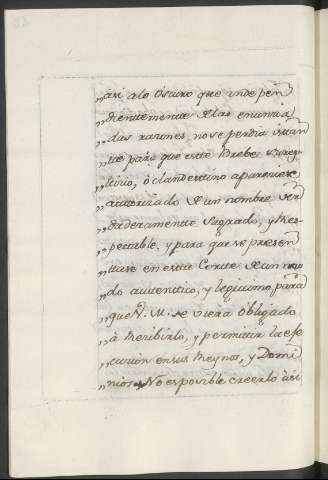 „asi alo Oscuro que inde pen
„dientemente de las enuncia
„das razones, no se perdia instan
„te para que este Brebe subrep
„ticio, ò clandestino apareciese
„autorizado de un nombre ver
„daderamente Sagrado, y Res
„petable, y para que se presen
„tase en esta Corte de un mo
„do autentico, y legitimo para
„que V. M. se viera obligado
„à Recibirlo, y permitir la efe
„cucion en sus Reynos, y Domi
„nios. No es posible creerlo àsi